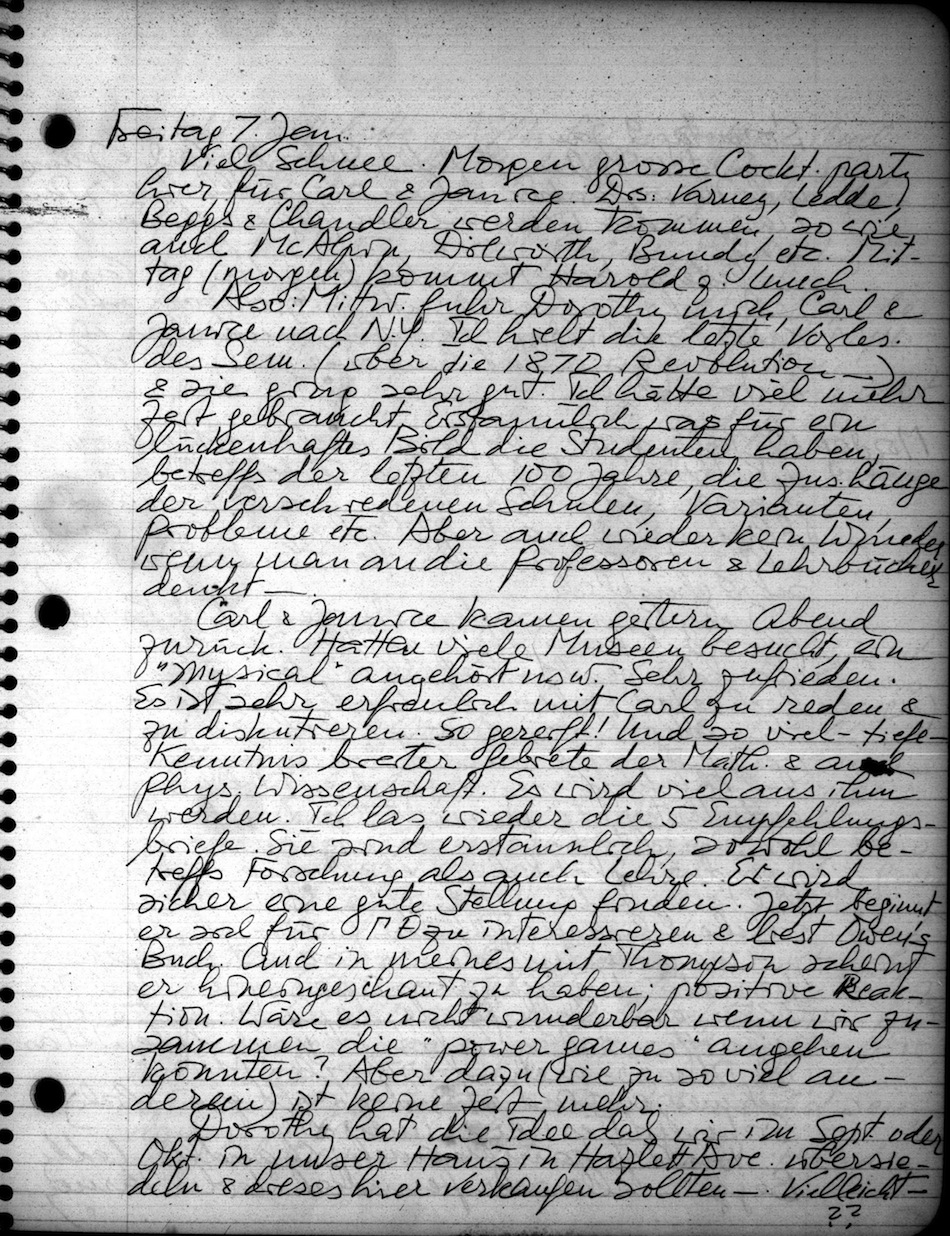 Freitag 7. Jan.
Viel Schnee. Morgen grosse Cockt. party
hier für Carl & Janice. Drs. Varney, Ledde,
Beggs & Chandler werden kommen, so wie
auch McAlpin, Dilworth, Bundy etc. Mit-
tag (morgen) kommt Harold z. Lunch.
Also: Mittw. fuhr Dorothy mich, Carl &
Janice nach N.Y. Ich hielt die letzte Vorles.
des Sem. (über die 1870 Revolution —)
& sie ging sehr gut. Ich hätte viel mehr
Zeit gebraucht. Erstaunlich was für ein
lückenhaftes Bild die Studenten haben,
betreffs der letzten 100 Jahre, die Zus.hänge
der verschiedenen Schulen, Varianten,
Probleme etc. Aber auch wieder kein Wunder
wenn man an die Professoren & Lehrbücher
denkt —.
Carl & Janice kamen gestern Abend
zurück. Hatten viele Museen besucht, ein
"Mysical" angehört usw. Sehr zufrieden.
Es ist sehr erfreulich mit Carl zu reden &
zu diskutieren. So gereift! Und so viel - tiefe -
Kenntnis breiter Gebiete der Math. & auch
Phys. Wissenschaft. Es wird viel aus ihm
werden. Ich las wieder die 5 Empfehlungs-
briefe. Sie sind erstaunlich, sowohl be-
treffs Forschung als auch Lehre. Er wird
sicher eine gute Stellung finden. Jetzt beginnt
er sich für zu interessieren & liest Owen's
Buch. Auch in meines mit Thompson scheint
er hineingeschaut zu haben; positive Reak-
tion. Wäre es nicht wunderbar wenn wir zu-
sammen die "power games" angehen
könnten? Aber dazu (wie zu so viel an-
derem) ist keine Zeit mehr.
Dorothy hat die Idee daß wir im Sept. oder
Okt. in unser Haus in Hazlett Ave. übersie-
deln & dieses hier verkaufen sollten —. Vielleicht —
??